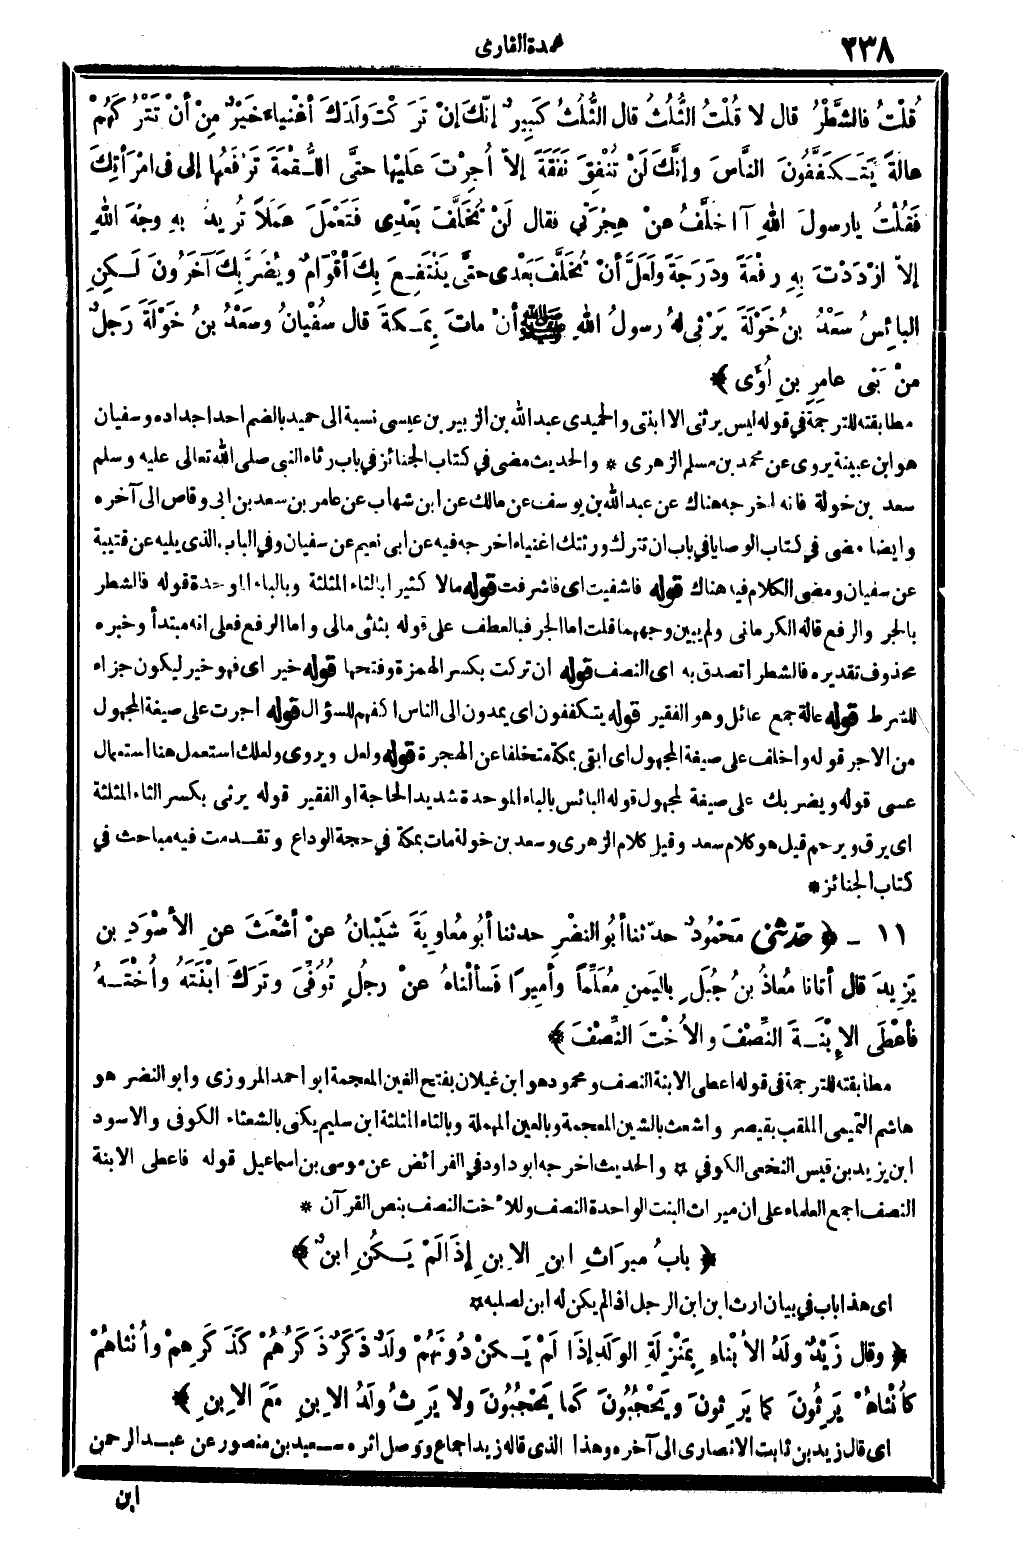 ٢٣٨ عمدة القارى
قُلْتُ فالشَّطْرُ قال لا قُلْتُ الثُّلُثُ قال الثُّلُثُ كَبِيرٌ إنّكَ إنْ تَرَكْتَ وَلَدَكَ أغْنِياءَ خَيْرٌ مِنْ أنْ تَتْرُكَهُمْ
عالَةً يَتَكَفَّفُونَ النَّاسَ وإنَّكَ لَنْ تُنْفِقَ نَفَقَةً إلاّ أُجِرْتَ عَلَيْها حتَّى اللُّقْمَةَ تَرْفَعُها إلى فى امْرَأتِكَ
فَقُلْتُ يارسولَ اللهِ آأُخَلَّفُ عنْ هِجْرَتِي فقال لَنْ تُخَلَّفَ بَعْدِى فَتَعْمَلَ عَمَلاً تُرِيدُ بهِ وجْهَ اللهِ
إلاّ ازْدَدْتَ بِهِ رِفْعَةً ودَرَجَةً ولَعَلَّ أنْ تُخَلَّفَ بَعْدِى حتَّى يَنْتَفِعَ بِكَ أقْوَامٌ ويُضَرَّ بِكَ آخَرُونَ لَكِنِ
البائِسُ سَعْدُ بنُ خَوْلَةَ يَرْثِى لهُ رسولُ اللهِ ﷺ أنْ ماتَ بِمَكَّةَ قال سُفْيانُ وسَعْدُ بنُ خَوْلَةَ رَجلٌ
منْ بَنِى عامِرِ بنِ لُؤَىّ ﴾
مطابقته للترجمة في قوله ليس يرثنى الا ابنتى والحميدى عبد الله بن الزبير بن عيسى نسبة الى حميد بالضم احد اجداده وسفيان
هو ابن عيينة يروى عن محمد بن مسلم الزهرى * والحديث مضى في كتاب الجنائز في باب رثاء النبى صلى الله تعالى عليه وسلم
سعد بن خولة فانه اخرجه هناك عن عبد الله بن يوسف عن مالك عن ابن شهاب عن عامر بن سعد بن ابى وقاص الى آخره
وايضا مضى في كتاب الوصايا في باب ان تترك ورثتك اغنياء اخرجه فيه عن ابى نعيم عن سفيان وفي الباب الذى يليه عن قتيبة
عن سفيان ومضى الكلام فيه هناك قوله فاشفيت اى فاشرفت قوله مالا كثيرا بالثاء المثلثة وبالباء الموحدة قوله فالشطر
بالجر والرفع قاله الكرمانى ولم يبين وجههما قلت اما الجر فبالعطف على قوله بثلثى مالى واما الرفع فعلى انه مبتدأ وخبره
محذوف تقديره فالشطر اتصدق به اى النصف قوله ان تركت بكسر الهمزة وفتحها قوله خير اى فهو خير ليكون جزاء
للشرط قوله عالة جمع عائل وهو الفقير قوله يتكففون اى يمدون الى الناس اكفهم للسؤال قوله اجرت على صيغة المجهول
من الاجر قوله واخلف على صيغة المجهول اى ابقى بمكة متخلفا عن الهجرة قوله ولعل ويروى ولعلك استعمل هنا استعمال
عسى قوله ويضر بك على صيغة لمجهول قوله البائس بالباء الموحدة شديد الحاجة او الفقير قوله يرثى بكسر الثاء المثلثة
اى يرق ويرحم قيل هو كلام سعد وقيل كلام الزهرى وسعد بن خولة مات بمكة في حجة الوداع وتقدمت فيه مباحث في
كتاب الجنائز *
١١ ـ ﴿ حدّثنى مَحْمُودٌ حدّثنا أبُو النضْرِ حدثنا أبُو مُعاوِيَةَ شَيْبانُ عنْ أشْعَثَ عنِ الأسْوَدِ بنِ
يَزِيدَ قال أتانا مُعاذُ بنُ جُبَلٍ باليَمنِ مُعَلِّماً وأمِيراً فَسألْناهُ عنْ رجُلٍ تُوُفِّىَ وتَرَكَ ابْنَتَهُ وأُخْتَهُ
فأعْطَى الإِبْنَةَ النِّصْفَ والأُخْتَ النِّصْفَ ﴾
مطابقته للترجمة فى قوله اعطى الابنة النصف ومحمود هو ابن غيلان بفتح الغين المعجمة ابو احمد المروزى وابو النضر هو
هاشم التميمى الملقب بقيصر واشعث بالشين المعجمة وبالعين المهملة وبالثاء المثلثة ابن سليم يكنى بالشعثاء الكوفى والاسود
ابن يزيد بن قيس النخعى الكوفي * والحديث اخرجه ابو داود في الفرائض عن موسى بن اسماعيل قوله فاعطى الابنة
النصف اجمع العلماء على ان ميراث البنت الواحدة النصف وللأخت النصف بنص القرآن *
﴿ بابُ ميراثِ ابنِ الابنِ إذَا لَمْ يَكُنِ ابنٌ ﴾
اى هذا باب في بيان ارث ابن ابن الرجل اذا لم يكن له ابن لصلبه *
﴿ وقال زَيْدٌ ولَدُ الأبْناءِ بِمَنْزِلَةِ الوَلَدِ إذَا لَمْ يَكنْ دُونَهُمْ ولَدٌ ذَكَرٌ ذَكَرُهُمْ كَذَكَرِهِمْ وأُنْثاهُمْ
كأُنْثاهُمْ يَرِثُونَ كما يَرِثونَ ويَحْجُبُونَ كَما يَحْجُبُونَ ولا يَرِثُ ولَدُ الابنِ معَ الابنِ ﴾
اى قال زيد بن ثابت الانصارى الى آخره وهذا الذى قاله زيد اجماع ووصل اثره سعيد بن منصور عن عبد الرحمن
ابن